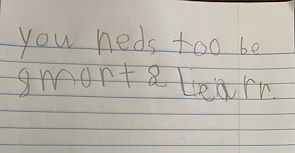 you neds too be
smart & Learn.